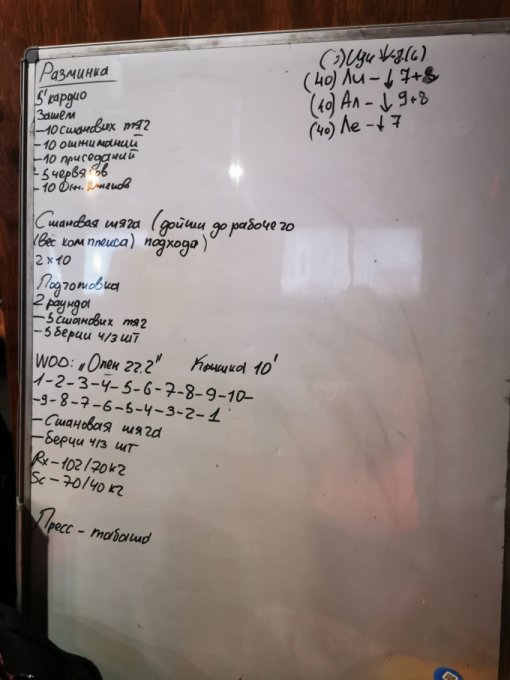 Разминка
5' кардио
Затем
- 10 становых тяг
- 10 отжиманий
- 10 приседаний
- 5 червяков
- 10
Становая тяга (дойти до рабочего
(вес комплекса) подхода)
2 x 10
Подготовка
2 раунда
- 5 становых тяг
- 5 берпи ч/з шт
WOD: „Опен 22.2" Крышка 10'
1-2-3-4-5-6-7-8-9-10-
-9-8-7-6-5-4-3-2-1
- Становая тяга
- Берпи ч/з шт
Rx - 102/70 кг
Sc - 70/40 кг
Пресс - табата
(40) Ли - ↓ 7+8
(40) Ал - ↓ 9+8
(40) Ле - ↓ 7